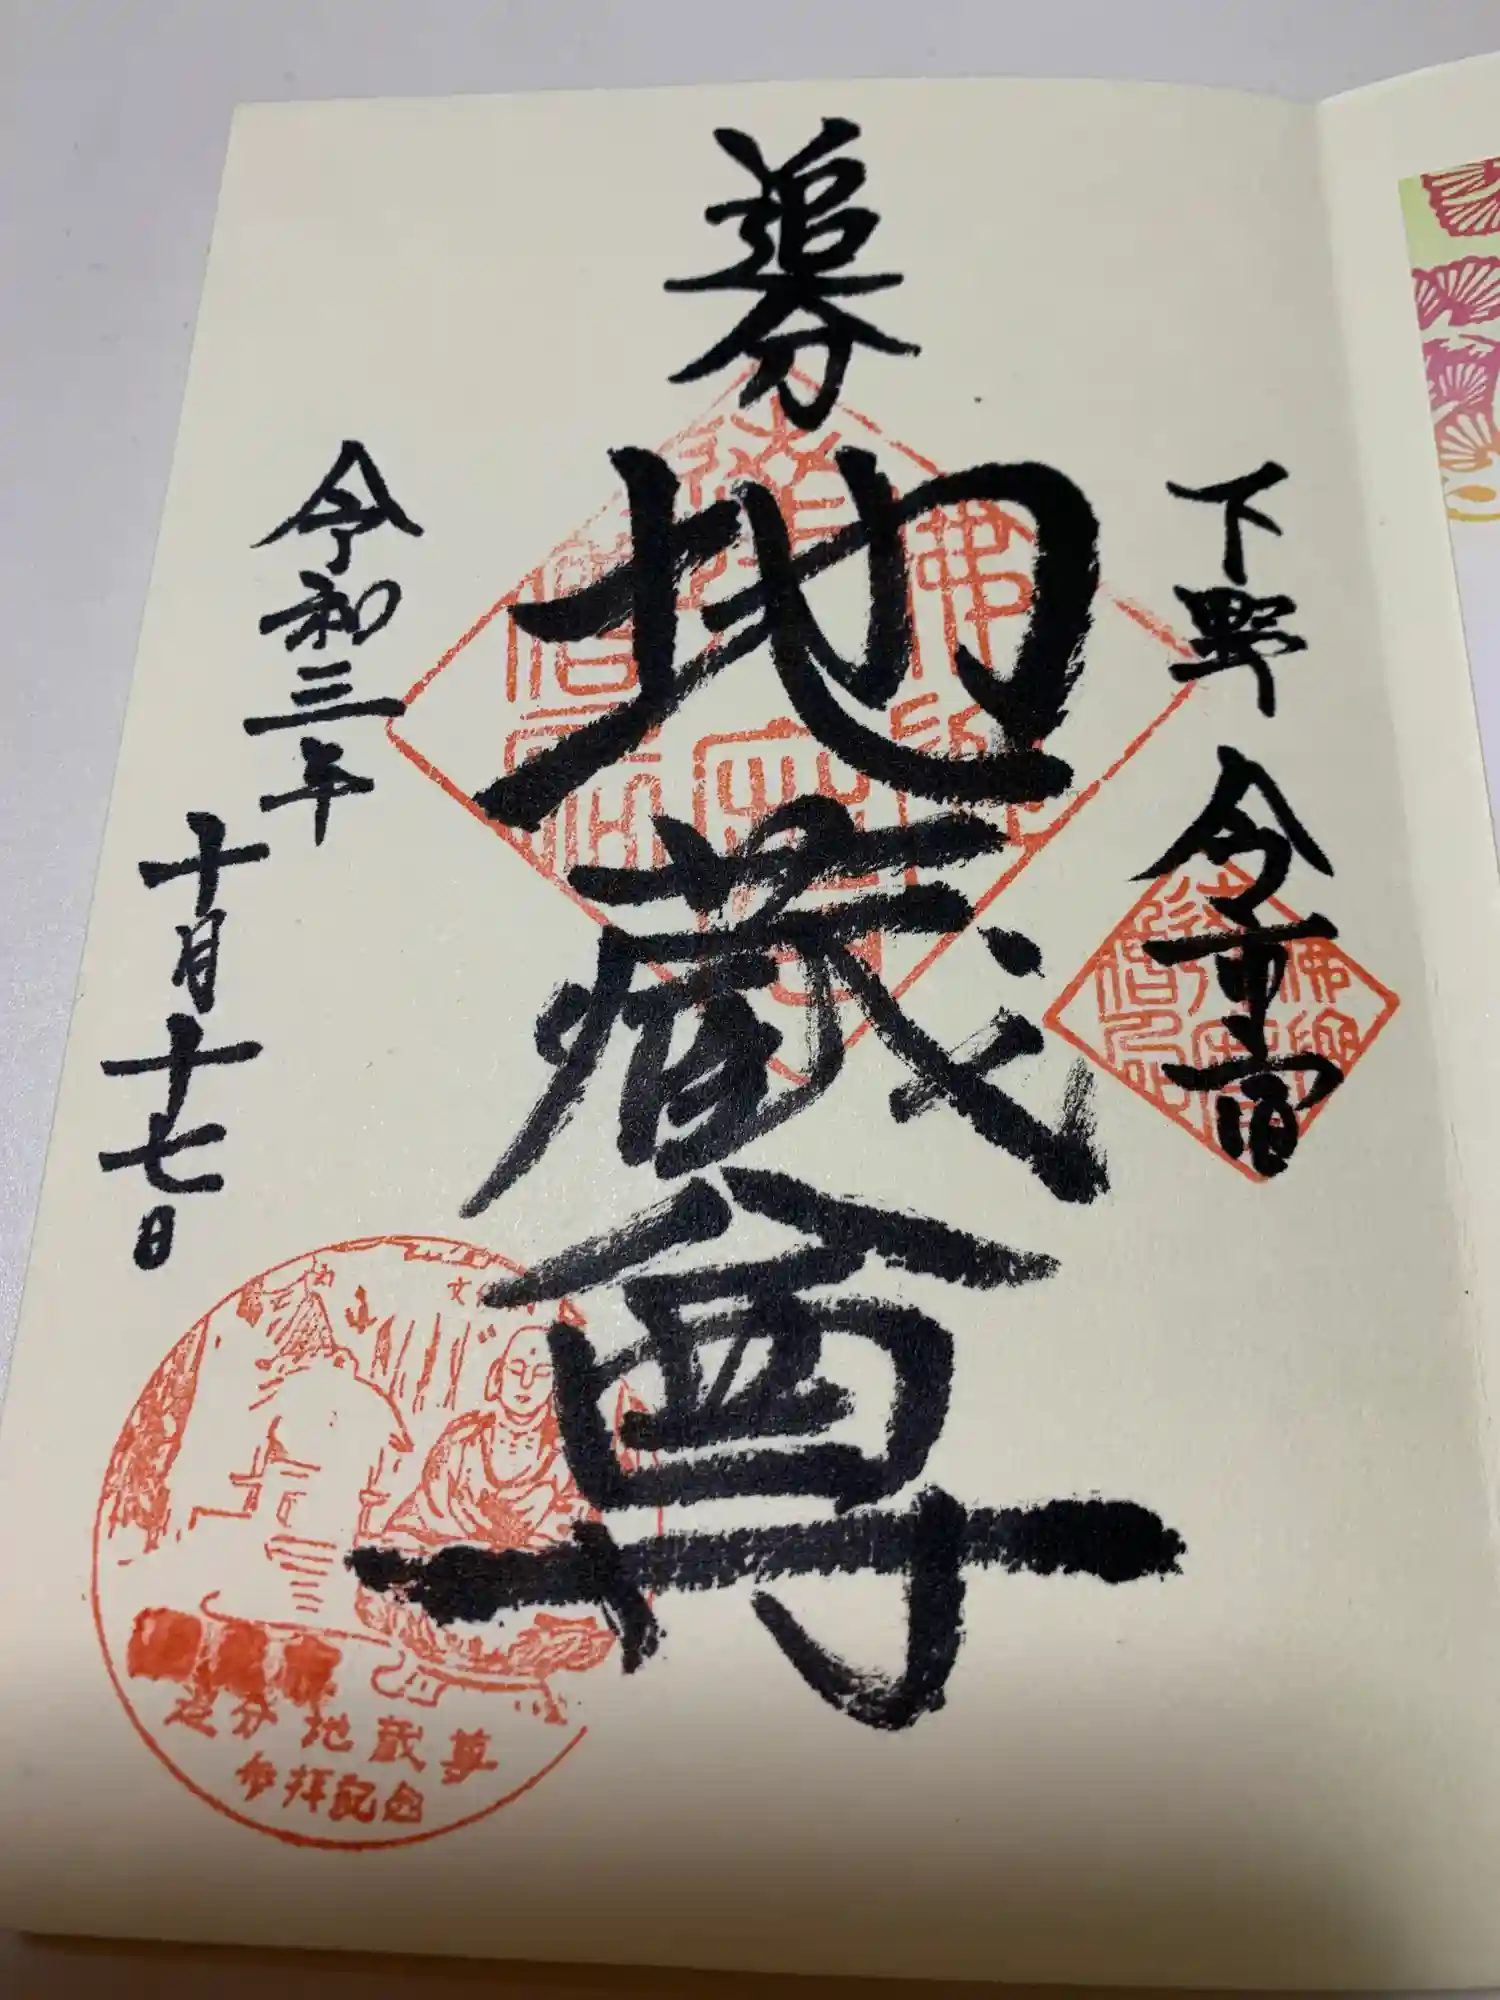 下野 今市宿
追分
地蔵尊
令和三年
十月十七日
追分地蔵尊
参拝記念